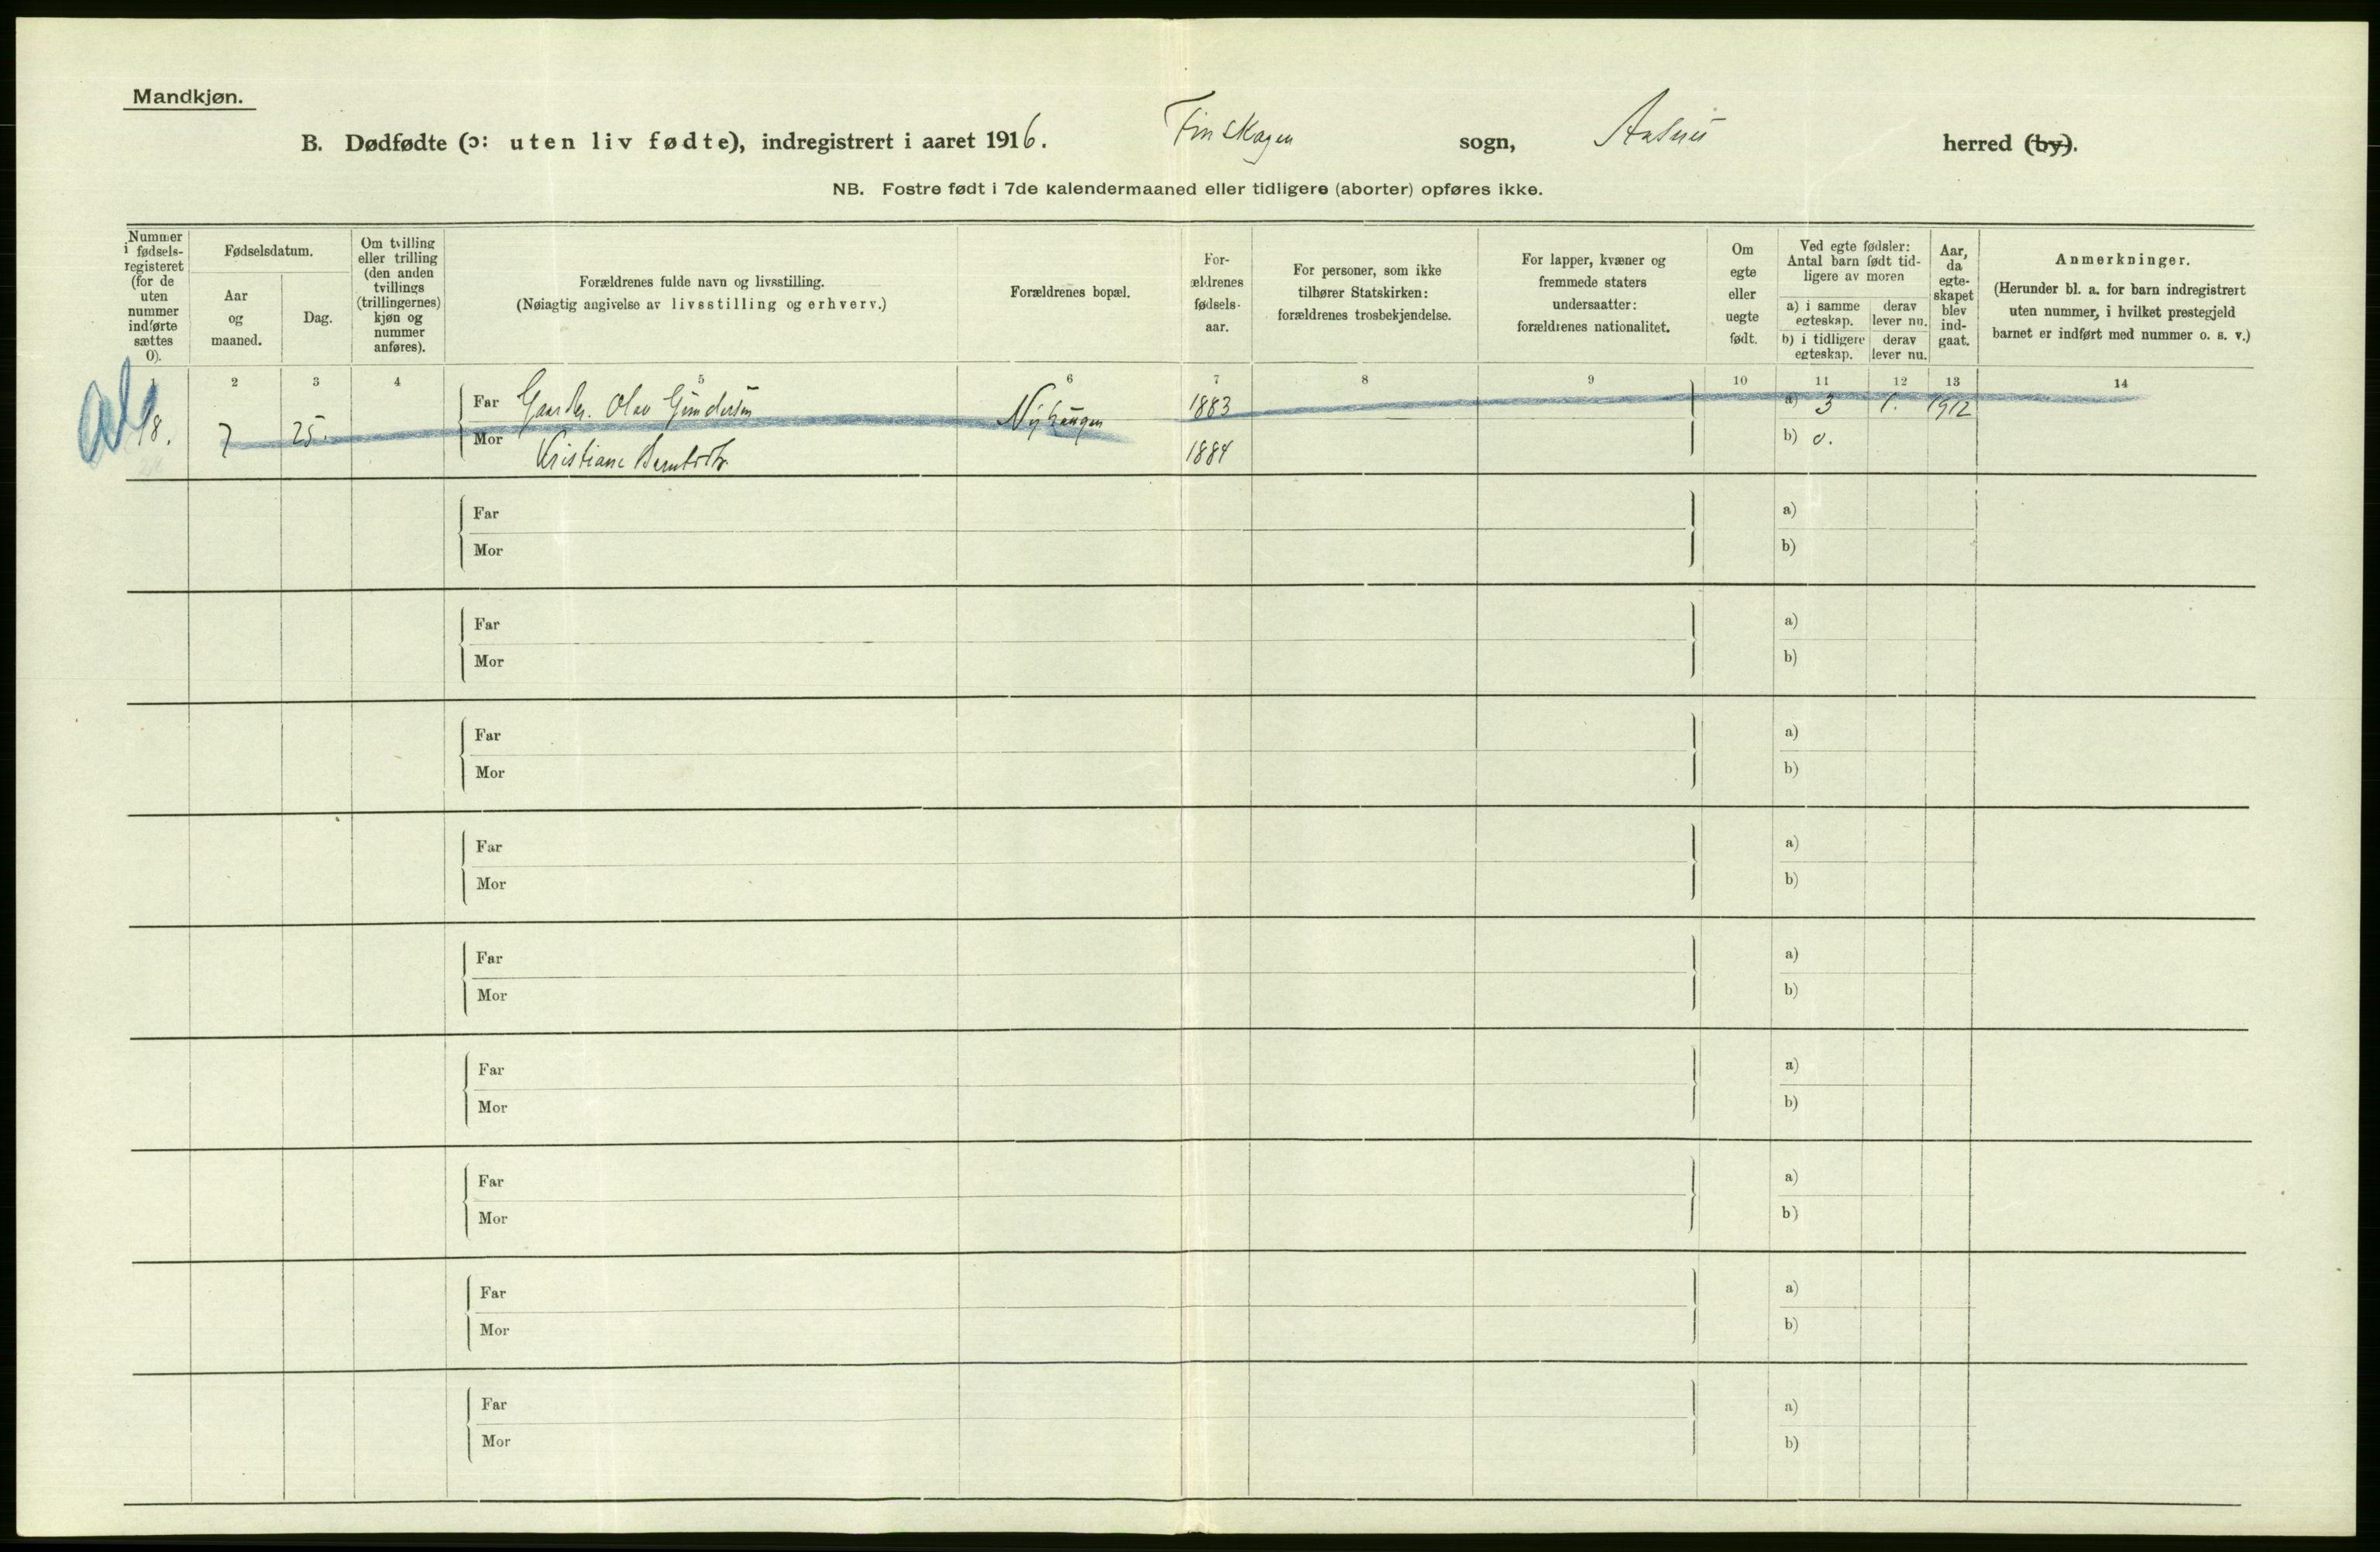 Mandkjøn.
B. Dødfødte (ɔ: uten liv fødte), indregistrert i aaret 1916. Finskogen sogn, Aasnes herred (by).
NB. Fostre født i 7de kalendermaaned eller tidligere (aborter) opføres ikke.
Nummer i fødsels-registeret (for de uten nummer indførte sættes 0).
Fødselsdatum.
Aar og maaned.
Dag.
Om tvilling eller trilling (den anden tvillings (trillingernes) kjøn og nummer anføres).
Forældrenes fulde navn og livsstilling.
(Nøiagtig angivelse av livsstilling og erhverv.)
Forældrenes bopæl.
For-ældrenes fødsels-aar.
For personer, som ikke tilhører Statskirken: forældrenes trosbekjendelse.
For lapper, kvæner og fremmede staters undersaatter: forældrenes nationalitet.
Om egte eller uegte født.
Ved egte fødsler: Antal barn født tid-ligere av moren
a) i samme egteskap. derav lever nu.
b) i tidligere egteskap. derav lever nu.
Aar, da egte-skapet blev ind-gaat.
Anmerkninger.
(Herunder bl. a. for barn indregistrert uten nummer, i hvilket prestegjeld barnet er indført med nummer o. s. v.)
1 2 3 4 5 6 7 8 9 10 11 12 13 14
18. 7 25. Far Gaardbr. Olav Gundersen Nyhaugen 1883 a) 3 1. 1912
Mor Kristiane Berntsdtr 1884 b) 0.
Far a)
Mor b)
Far a)
Mor b)
Far a)
Mor b)
Far a)
Mor b)
Far a)
Mor b)
Far a)
Mor b)
Far a)
Mor b)
Far a)
Mor b)
Far a)
Mor b)